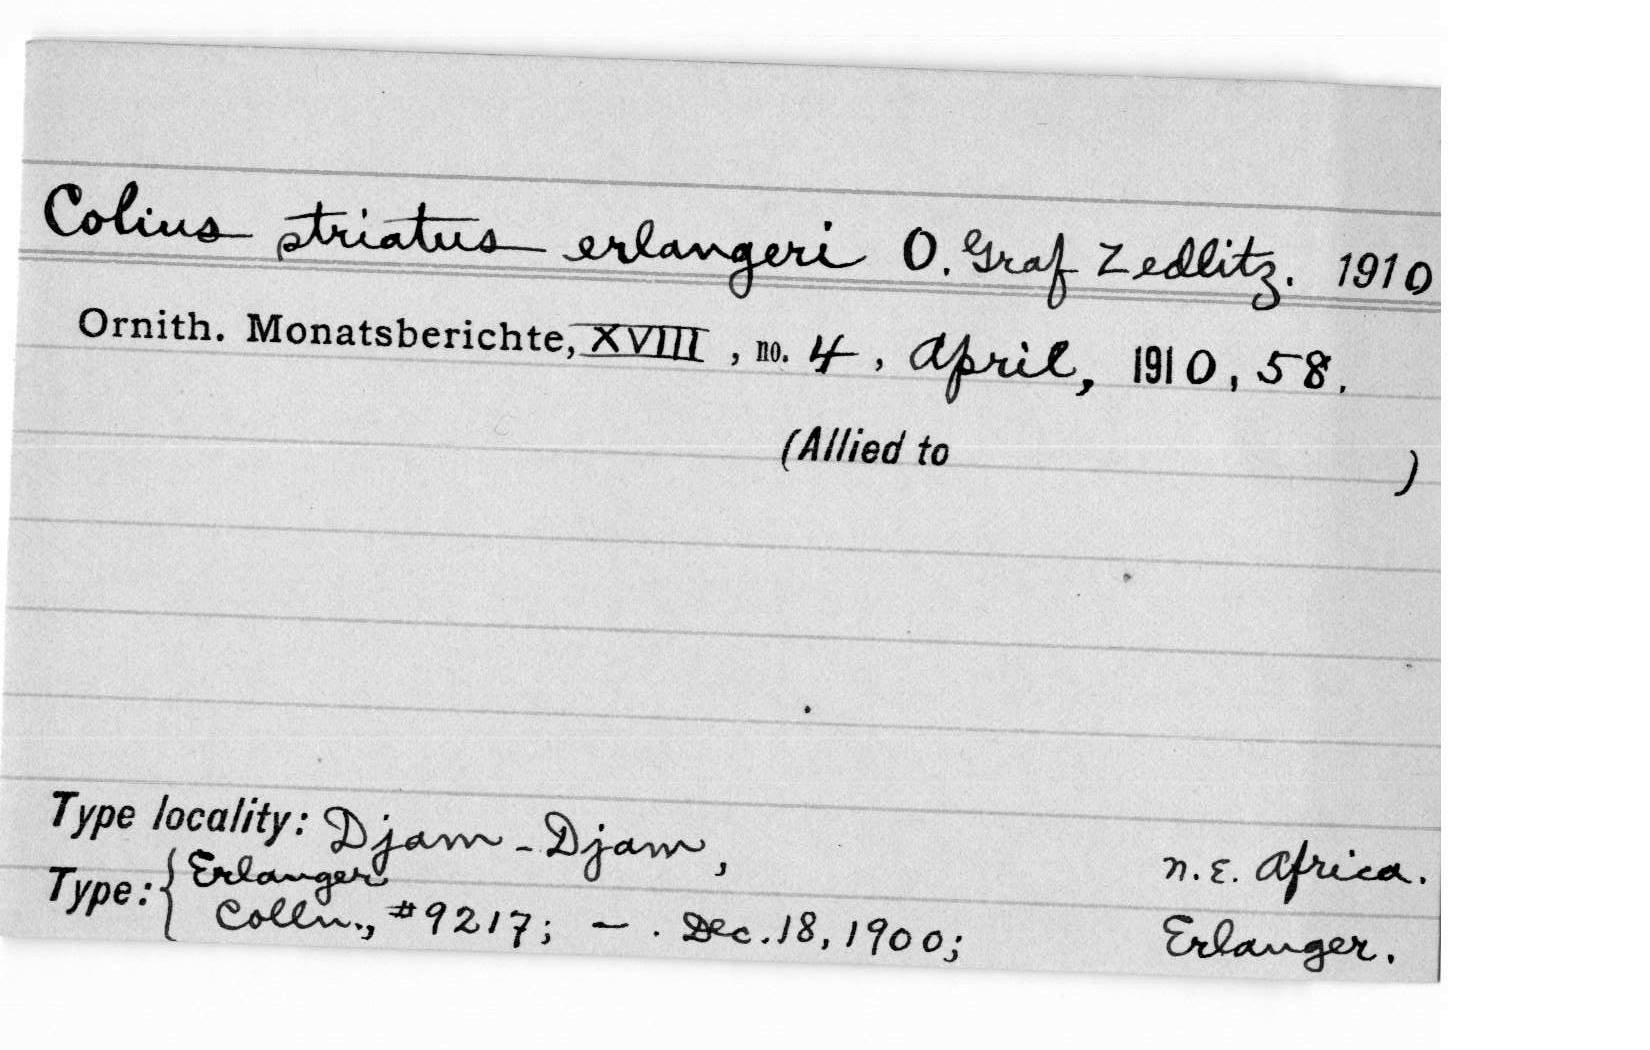 Colius striatus erlangeri O. Graf Zedlitz. 1910
Ornith. Monatsberichte, XVIII, no. 4, April, 1910, 58.
(Allied to )
Type locality: Djam-Djam, N.E. Africa.
Type: { Erlanger
Colln., #9217; — . Dec. 18, 1900; Erlanger.